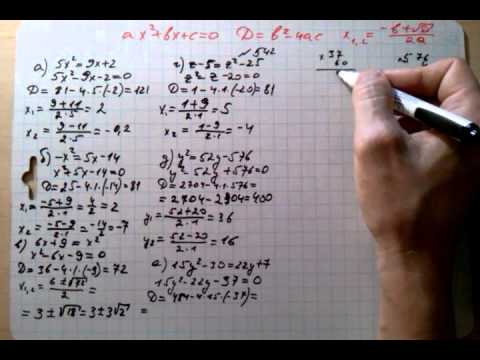 ax²+bx+c=0 D=b²-4ac x₁,₂=(-b±√D)/2a
~542
x37
60
x576
а) 5x²=9x+2
5x²-9x-2=0
D=81-4.5.(-2)=121
x₁=(9+11)/(2·5)=2
x₂=(9-11)/(2·5)=-0,2
б) -x²=5x-14
x²+5x-14=0
D=25-4.1.(-14)=81
x₁=(-5+9)/(2·1)=4/2=2
x₂=(-5-9)/(2·1)=-14/2=-7
в) 6x+9=x²
x²-6x-9=0
D=36-4.1.(-9)=72
x₁,₂=(6±√72)/2=
=3±√18=3±3√2
г) z-5=z²-25
z²-z-20=0
D=1-4.1.(-20)=81
x₁=(1+9)/(2·1)=5
x₂=(1-9)/(2·1)=-4
д) y²=52y-576
y²-52y+576=0
D=2704-4.1.576=
=2704-2304=400
y₁=(52+20)/(2·1)=36
y₂=(52-20)/(2·1)=16
е) 15y²-30=22y+7
15y²-22y-37=0
D=484-4.15.(-37)=
=